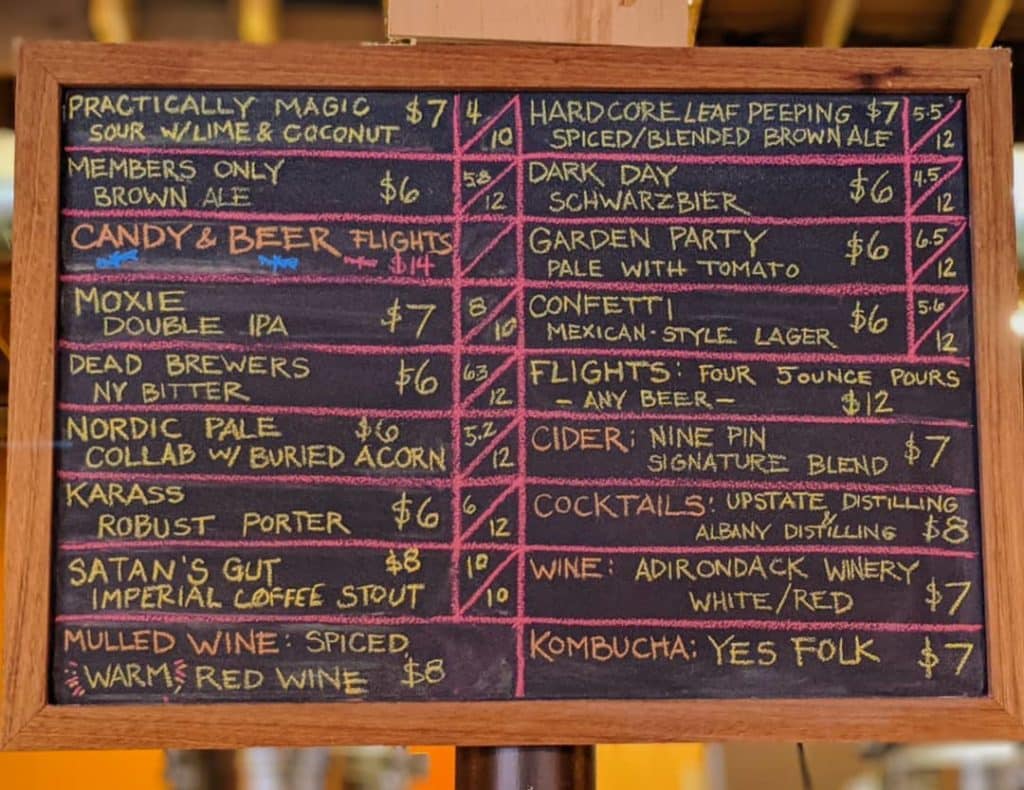 PRACTICALLY MAGIC $7 4/10
SOUR W/LIME & COCONUT
MEMBERS ONLY 5.8/12
BROWN ALE $6
CANDY & BEER FLIGHTS
$14
MOXIE $7 8/10
DOUBLE IPA
DEAD BREWERS $6 6.3/12
NY BITTER
NORDIC PALE $6 5.2/12
COLLAB W/ BURIED ACORN
KARASS $6 6/12
ROBUST PORTER
SATAN'S GUT $8 10/10
IMPERIAL COFFEE STOUT
MULLED WINE: SPICED,
WARM, RED WINE $8
HARDCORE LEAF PEEPING $7 5.5/12
SPICED/BLENDED BROWN ALE
DARK DAY $6 4.5/12
SCHWARZBIER
GARDEN PARTY $6 6.5/12
PALE WITH TOMATO
CONFETTI $6 5.6/12
MEXICAN-STYLE LAGER
FLIGHTS: FOUR 5OUNCE POURS
- ANY BEER - $12
CIDER: NINE PIN $7
SIGNATURE BLEND
COCKTAILS: UPSTATE DISTILLING
& ALBANY DISTILLING $8
WINE: ADIRONDACK WINERY
WHITE/RED $7
KOMBUCHA: YES FOLK $7